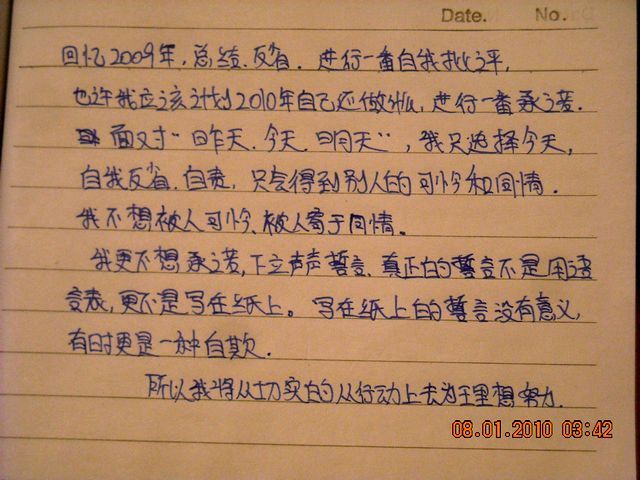 Date. No.
回忆2009年，总结、反省．进行一番自我批评，
也许我应该计划2010年自己还做些么，进行一番承诺．
面对“昨天、今天、明天”，我只选择今天，
自我反省、自责，只会得到别人的可怜和同情．
我不想被人可怜、被人寄于同情。
我更不想承诺，下立声声誓言、真正的誓言不是用语
言表，更不是写在纸上。写在纸上的誓言没有意义，
有时更是一种自欺．
所以我将从切实的从行动上去为理想努力．
08.01.2010 03:42